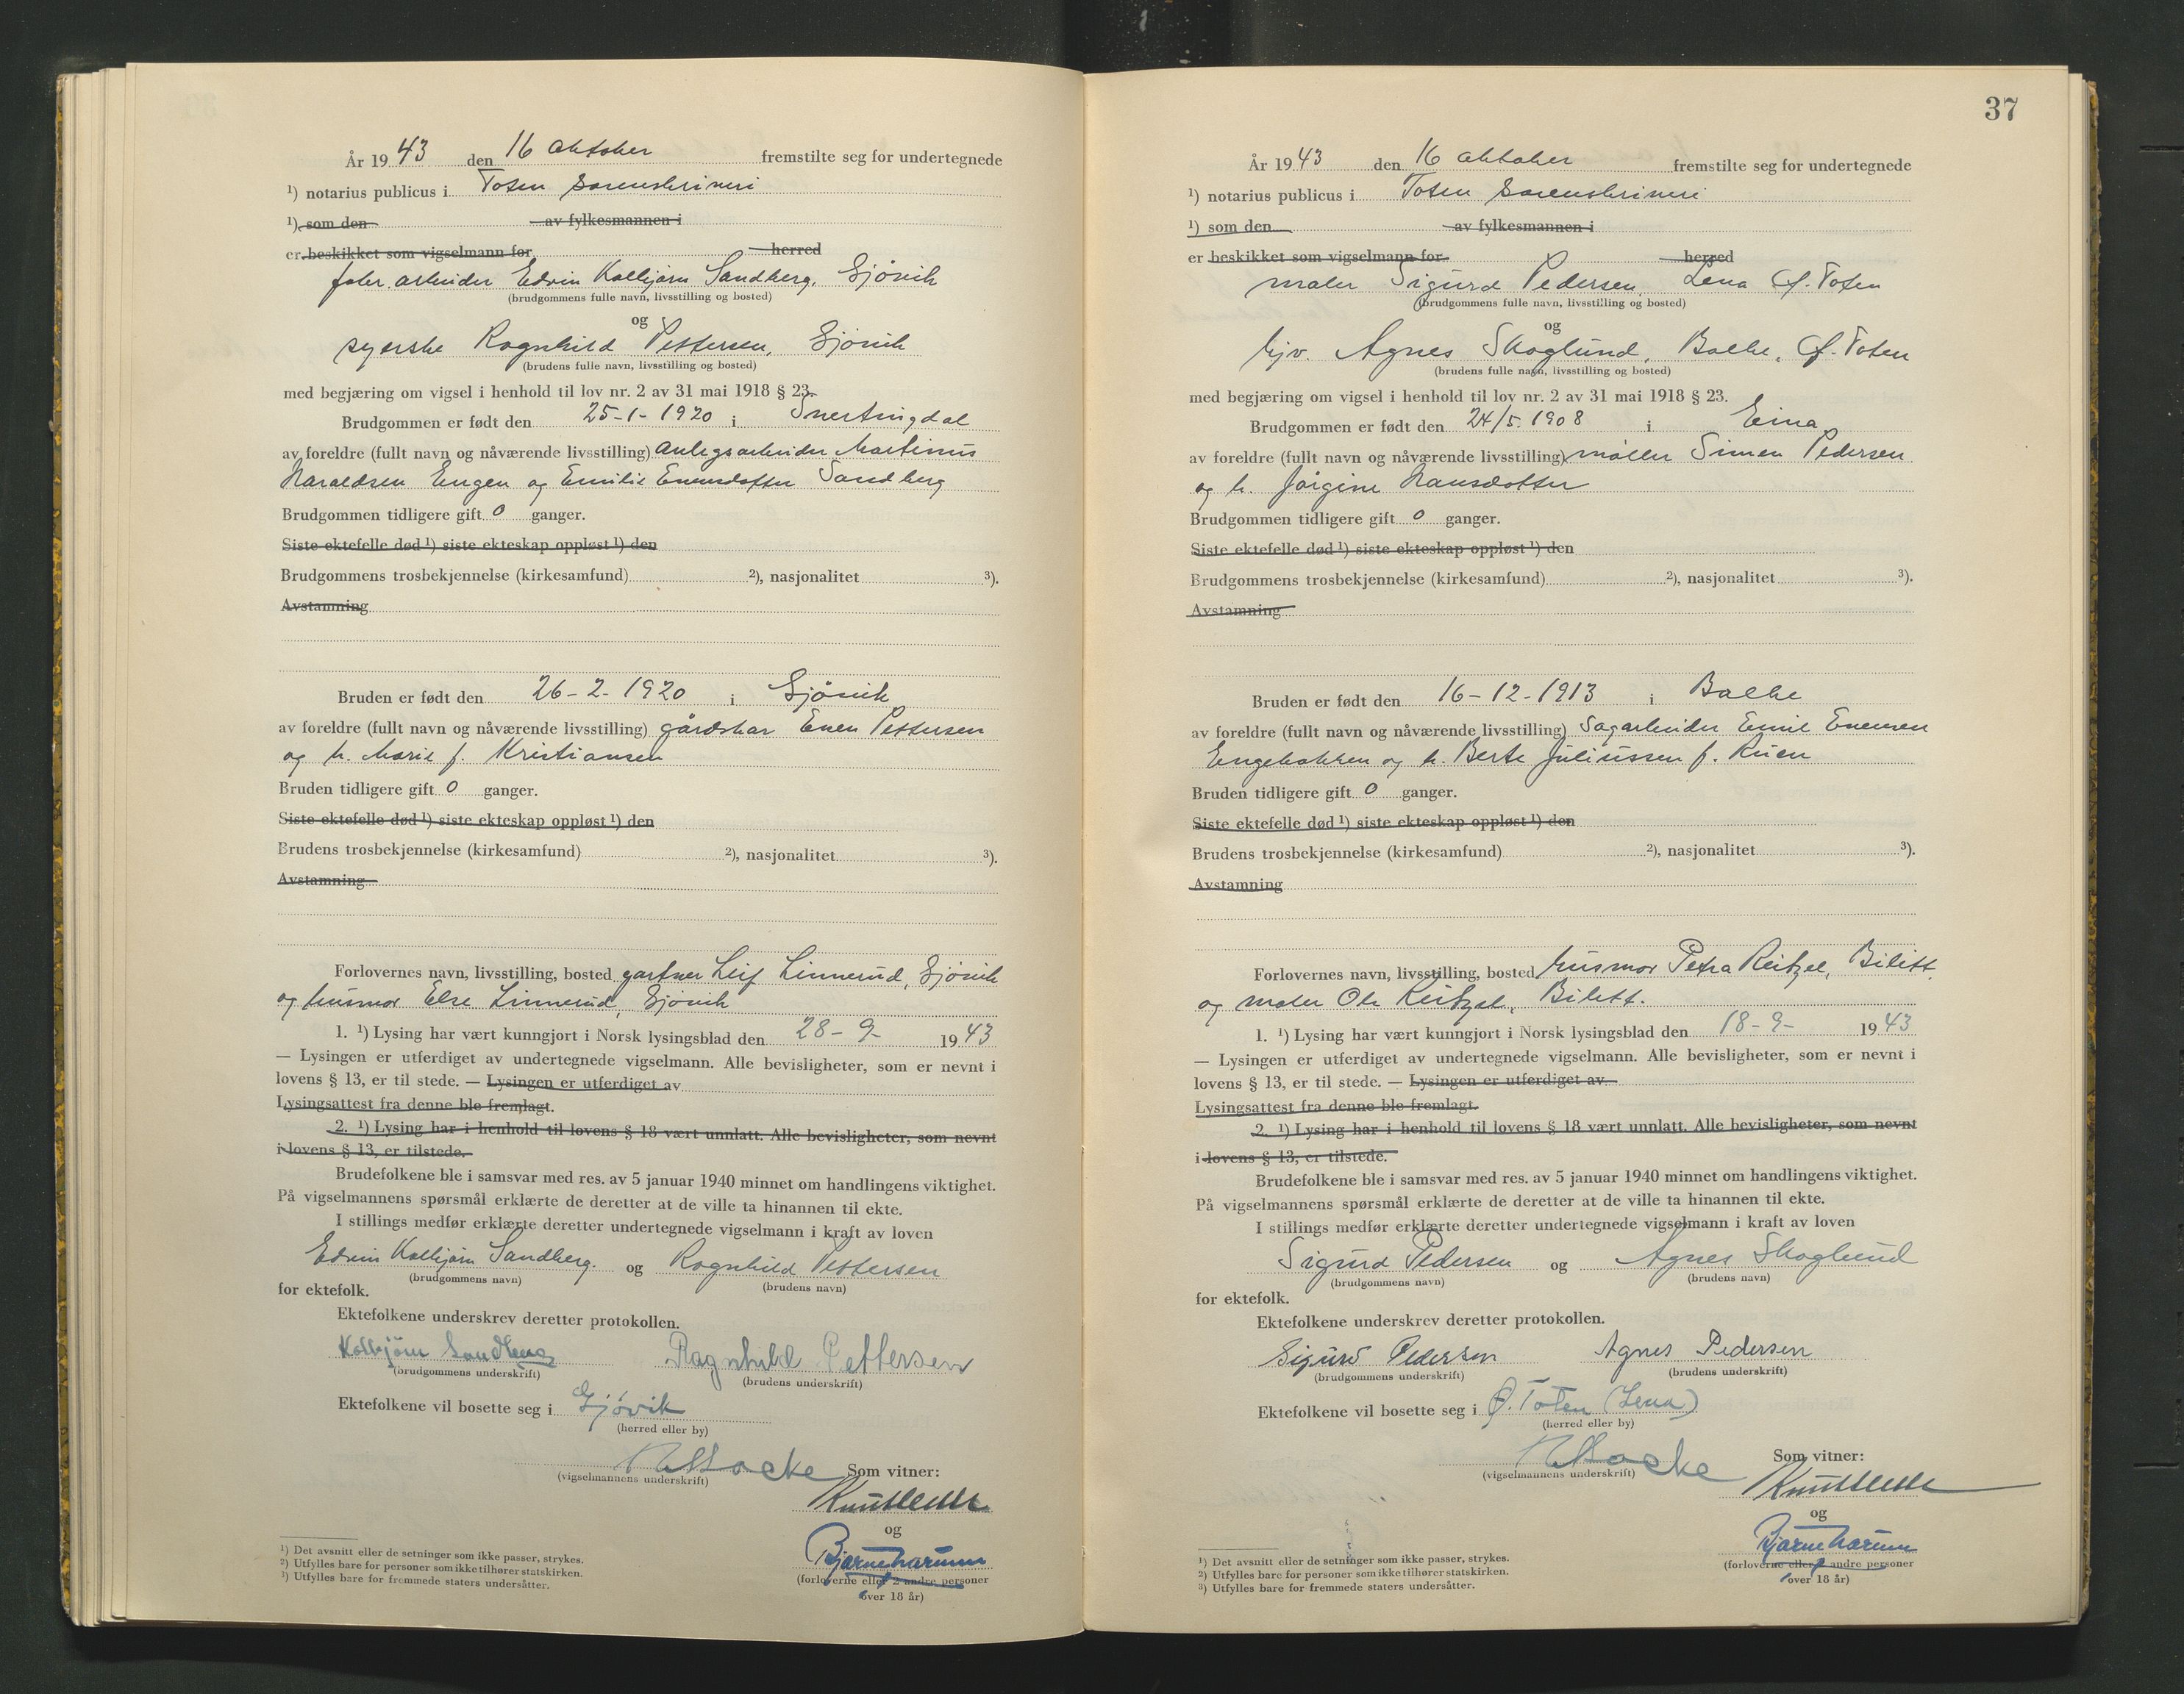 År 1943 den 16 oktober fremstilte seg for undertegnede
¹) notarius publicus i Toten sorenskriveri
¹) som den av fylkesmannen i
er beskikket som vigselmann for herred
fabr. arbeider Edvin Kolbjørn Sandberg, Gjövik
(brudgommens fulle navn, livsstilling og bosted)
og
syerske Ragnhild Pettersen, Gjövik
(brudens fulle navn, livsstilling og bosted)
med begjæring om vigsel i henhold til lov nr. 2 av 31 mai 1918 § 23.
Brudgommen er født den 25-1-1920 i Snertingdal
av foreldre (fullt navn og nåværende livsstilling) anlegsarbeider Martinus
Haraldsen Engen og Emilie Evensdatter Sandberg
Brudgommen tidligere gift 0 ganger.
Siste ektefelle død ¹) siste ekteskap oppløst ¹) den
Brudgommens trosbekjennelse (kirkesamfund) ²), nasjonalitet ³).
Avstamning
Bruden er født den 26-2-1920 i Gjövik
av foreldre (fullt navn og nåværende livsstilling) gårdskar Even Pettersen
og h. Marie f. Kristiansen
Bruden tidligere gift 0 ganger.
Siste ektefelle død ¹) siste ekteskap oppløst ¹) den
Brudens trosbekjennelse (kirkesamfund) ²), nasjonalitet ³).
Avstamning
Forlovernes navn, livsstilling, bosted gartner Leif Linnerud, Gjövik
og husmor Else Linnerud, Gjövik
1. ¹) Lysing har vært kunngjort i Norsk lysingsblad den 28-9- 1943
— Lysingen er utferdiget av undertegnede vigselmann. Alle bevisligheter, som er nevnt i
lovens § 13, er til stede. — Lysingen er utferdiget av
Lysingsattest fra denne ble fremlagt.
2. ¹) Lysing har i henhold til lovens § 18 vært unnlatt. Alle bevisligheter, som nevnt
i lovens § 13, er tilstede.
Brudefolkene ble i samsvar med res. av 5 januar 1940 minnet om handlingens viktighet.
På vigselmannens spørsmål erklærte de deretter at de ville ta hinannen til ekte.
I stillings medfør erklærte deretter undertegnede vigselmann i kraft av loven
Edvin Kolbjørn Sandberg. og Ragnhild Pettersen
(brudgommens navn) (brudens navn)
for ektefolk.
Ektefolkene underskrev deretter protokollen.
Kolbjörn Sandberg Ragnhild Pettersen
(brudgommens underskrift) (brudens underskrift)
Ektefolkene vil bosette seg i Gjövik
(herred eller by)
Som vitner:
(vigselmannens underskrift)
og
(forloverne eller 2 andre personer
over 18 år)
¹) Det avsnitt eller de setninger som ikke passer, strykes.
²) Utfylles bare for personer som ikke tilhører statskirken.
³) Utfylles bare for fremmede staters undersåtter.
37
År 1943 den 16 oktober fremstilte seg for undertegnede
¹) notarius publicus i Toten sorenskriveri
¹) som den av fylkesmannen i
er beskikket som vigselmann for herred
maler Sigurd Pedersen, Lena Ø. Toten
(brudgommens fulle navn, livsstilling og bosted)
og
hjv. Agnes Skoglund, Balke, Ø. Toten
(brudens fulle navn, livsstilling og bosted)
med begjæring om vigsel i henhold til lov nr. 2 av 31 mai 1918 § 23.
Brudgommen er født den 24/5-1908 i Eina
av foreldre (fullt navn og nåværende livsstilling) møller Simen Pedersen
og h. Jörgine Hansdatter
Brudgommen tidligere gift 0 ganger.
Siste ektefelle død ¹) siste ekteskap oppløst ¹) den
Brudgommens trosbekjennelse (kirkesamfund) ²), nasjonalitet ³).
Avstamning
Bruden er født den 16-12-1913 i Balke
av foreldre (fullt navn og nåværende livsstilling) Sagarbeider Emil Evensen
Engebakken og h. Berte Juliussen f. Ruen
Bruden tidligere gift 0 ganger.
Siste ektefelle død ¹) siste ekteskap oppløst ¹) den
Brudens trosbekjennelse (kirkesamfund) ²), nasjonalitet ³).
Avstamning
Forlovernes navn, livsstilling, bosted husmor Petra Reitzel, Bilitt
og maler Ole Reitzel, Bilitt.
1. ¹) Lysing har vært kunngjort i Norsk lysingsblad den 18-9- 1943
— Lysingen er utferdiget av undertegnede vigselmann. Alle bevisligheter, som er nevnt i
lovens § 13, er til stede. — Lysingen er utferdiget av
Lysingsattest fra denne ble fremlagt.
2. ¹) Lysing har i henhold til lovens § 18 vært unnlatt. Alle bevisligheter, som nevnt
i lovens § 13, er tilstede.
Brudefolkene ble i samsvar med res. av 5 januar 1940 minnet om handlingens viktighet.
På vigselmannens spørsmål erklærte de deretter at de ville ta hinannen til ekte.
I stillings medfør erklærte deretter undertegnede vigselmann i kraft av loven
Sigurd Pedersen og Agnes Skoglund
(brudgommens navn) (brudens navn)
for ektefolk.
Ektefolkene underskrev deretter protokollen.
Sigurd Pedersen Agnes Pedersen
(brudgommens underskrift) (brudens underskrift)
Ektefolkene vil bosette seg i Ø. Toten (Lena)
(herred eller by)
Som vitner:
(vigselmannens underskrift)
og
(forloverne eller 2 andre personer
over 18 år)
¹) Det avsnitt eller de setninger som ikke passer, strykes.
²) Utfylles bare for personer som ikke tilhører statskirken.
³) Utfylles bare for fremmede staters undersåtter.